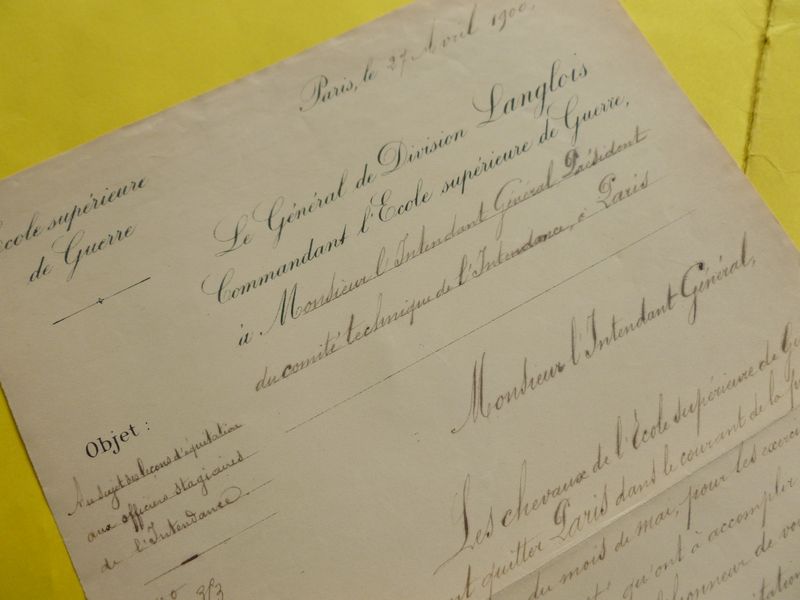 Paris, le 27 Avril 1900.
Ecole supérieure
de Guerre
Le Général de Division Langlois
Commandant l'Ecole supérieure de Guerre,
à Monsieur l'Intendant Général Président
du comité technique de l'Intendance, à Paris
Monsieur l'Intendant Général,
Objet :
Au sujet des leçons d'équitation
aux officiers stagiaires
de l'Intendance.
Les chevaux de l'Ecole supérieure de
quitter Paris dans le courant de la
du mois de mai, pour les
qu'ont à accomplir
honneur de